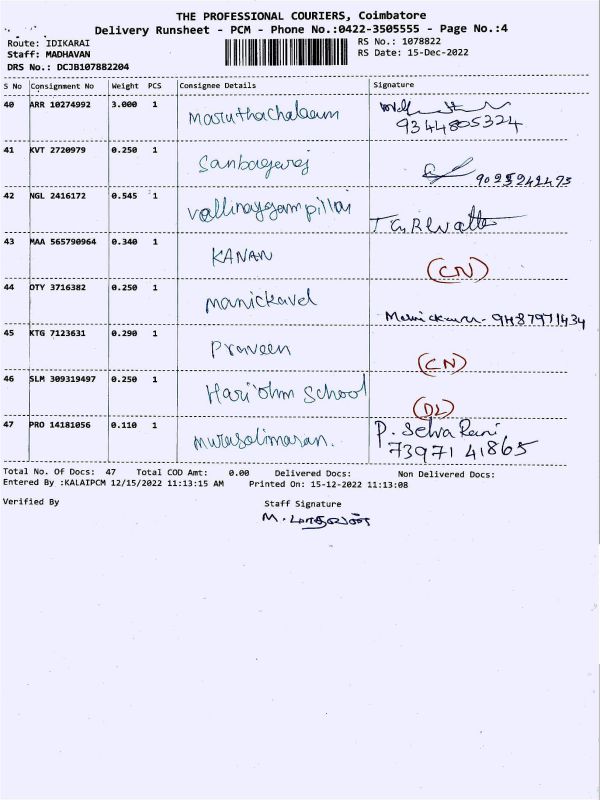 THE PROFESSIONAL COURIERS, Coimbatore
Delivery Runsheet - PCM - Phone No.:0422-3505555 - Page No.:4
Route: IDIKARAI RS No.: 1078822
Staff: MADHAVAN RS Date: 15-Dec-2022
DRS No.: DCJB107882204
S No Consignment No Weight PCS Consignee Details Signature
40 ARR 10274992 3.000 1 Maruthachalam
9344805324
41 KVT 2720979 0.250 1 Sanbagaraj
9025242475
42 NGL 2416172 0.545 1 Vallinayagampillai
43 MAA 565790964 0.340 1 KANAN (CN)
44 OTY 3716382 0.250 1 Manickavel
9487971434
45 KTG 7123631 0.290 1 Praveen (CN)
46 SLM 309319497 0.250 1 Hari ohm School (DL)
47 PRO 14181056 0.110 1 murasolimaran. P. Selva Rani
73971 41865
Total No. Of Docs: 47 Total COD Amt: 0.00 Delivered Docs: Non Delivered Docs:
Entered By :KALAIPCM 12/15/2022 11:13:15 AM Printed On: 15-12-2022 11:13:08
Verified By Staff Signature